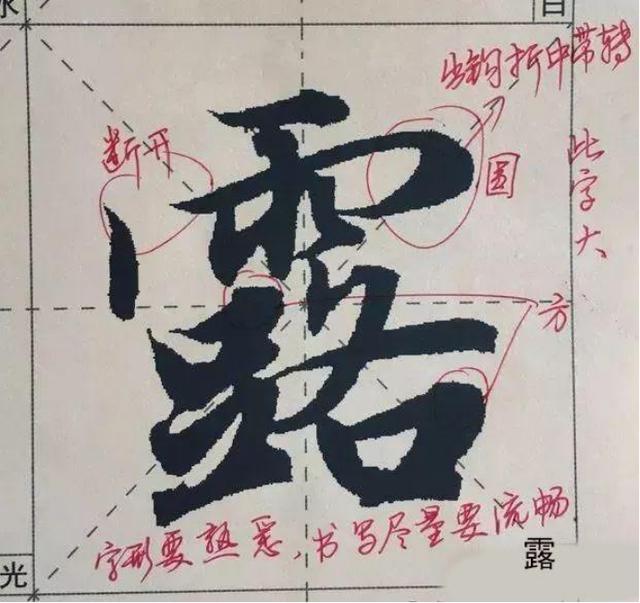 水
白
出钩折中带转
断开
圆
比字大
露
方
字形要熟悉，书写尽量要流畅
光
露